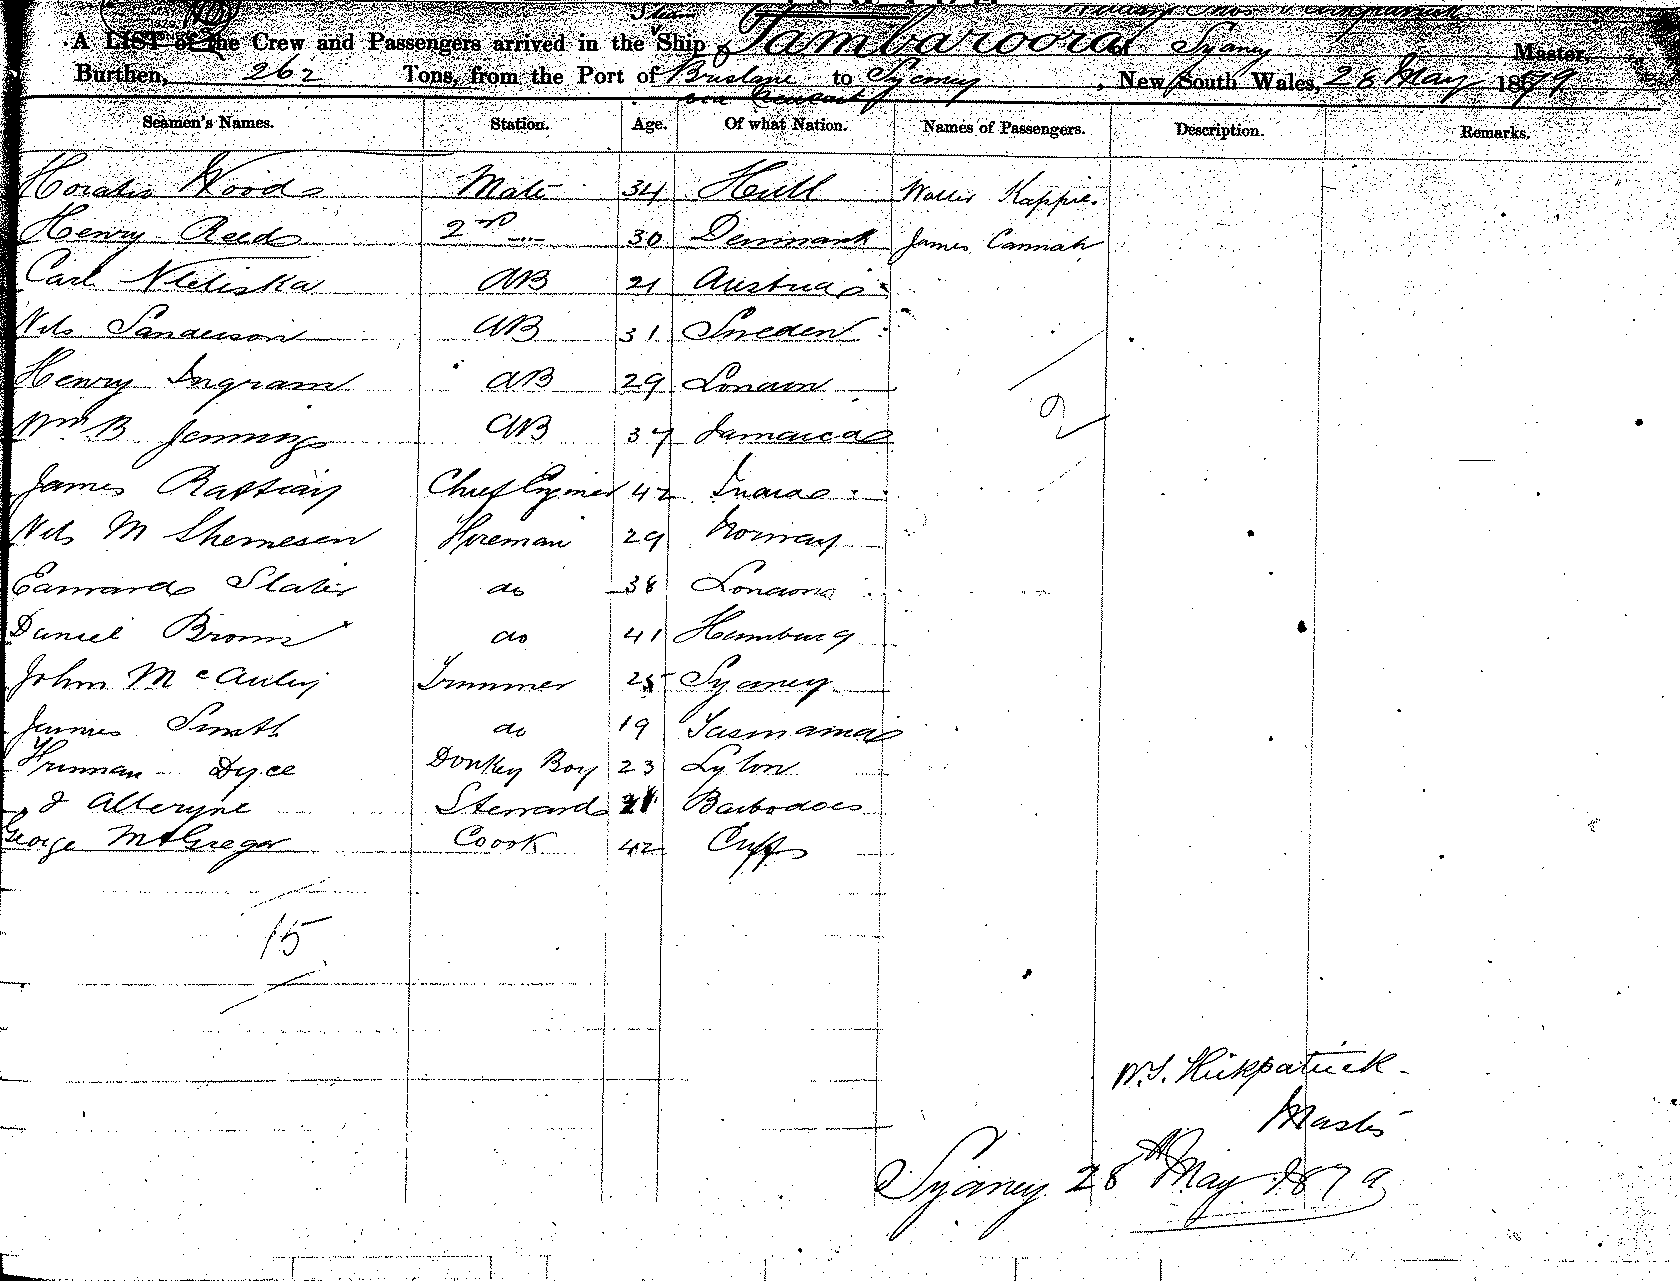 Steam
A LIST of the Crew and Passengers arrived in the Ship Tambaroora of Sydney Master,
Burthen, 262 Tons, from the Port of Brisbane to Sydney, New South Wales, 28 May 1879
via
Seamen's Names. Station. Age. Of what Nation. Names of Passengers. Description. Remarks.
Horatio Woods Mate 34 Hull Walter Kappies
Henry Reed 2nd 30 Denmark James Cannah
Carl AB 21 Austria
Nils Sanderson AB 31 Sweden
Henry Ingram AB 29 London
Wm B Jennings AB 37 Jamaica
2
James Chief Engineer 42 India
Nils M Shemesen Fireman 29 Norway
Edward Slater do 38 London
Daniel Brown do 41 Hamburg
John McAuley Trimmer 25 Sydney
James Smith do 19 Tasmania
Dyce Donkey Boy 23
J Alleryne Steward 21 Barbadoes
George McGregor Coook 42
15
W.S. Kirkpatrick
Master
Sydney 28th May 1879